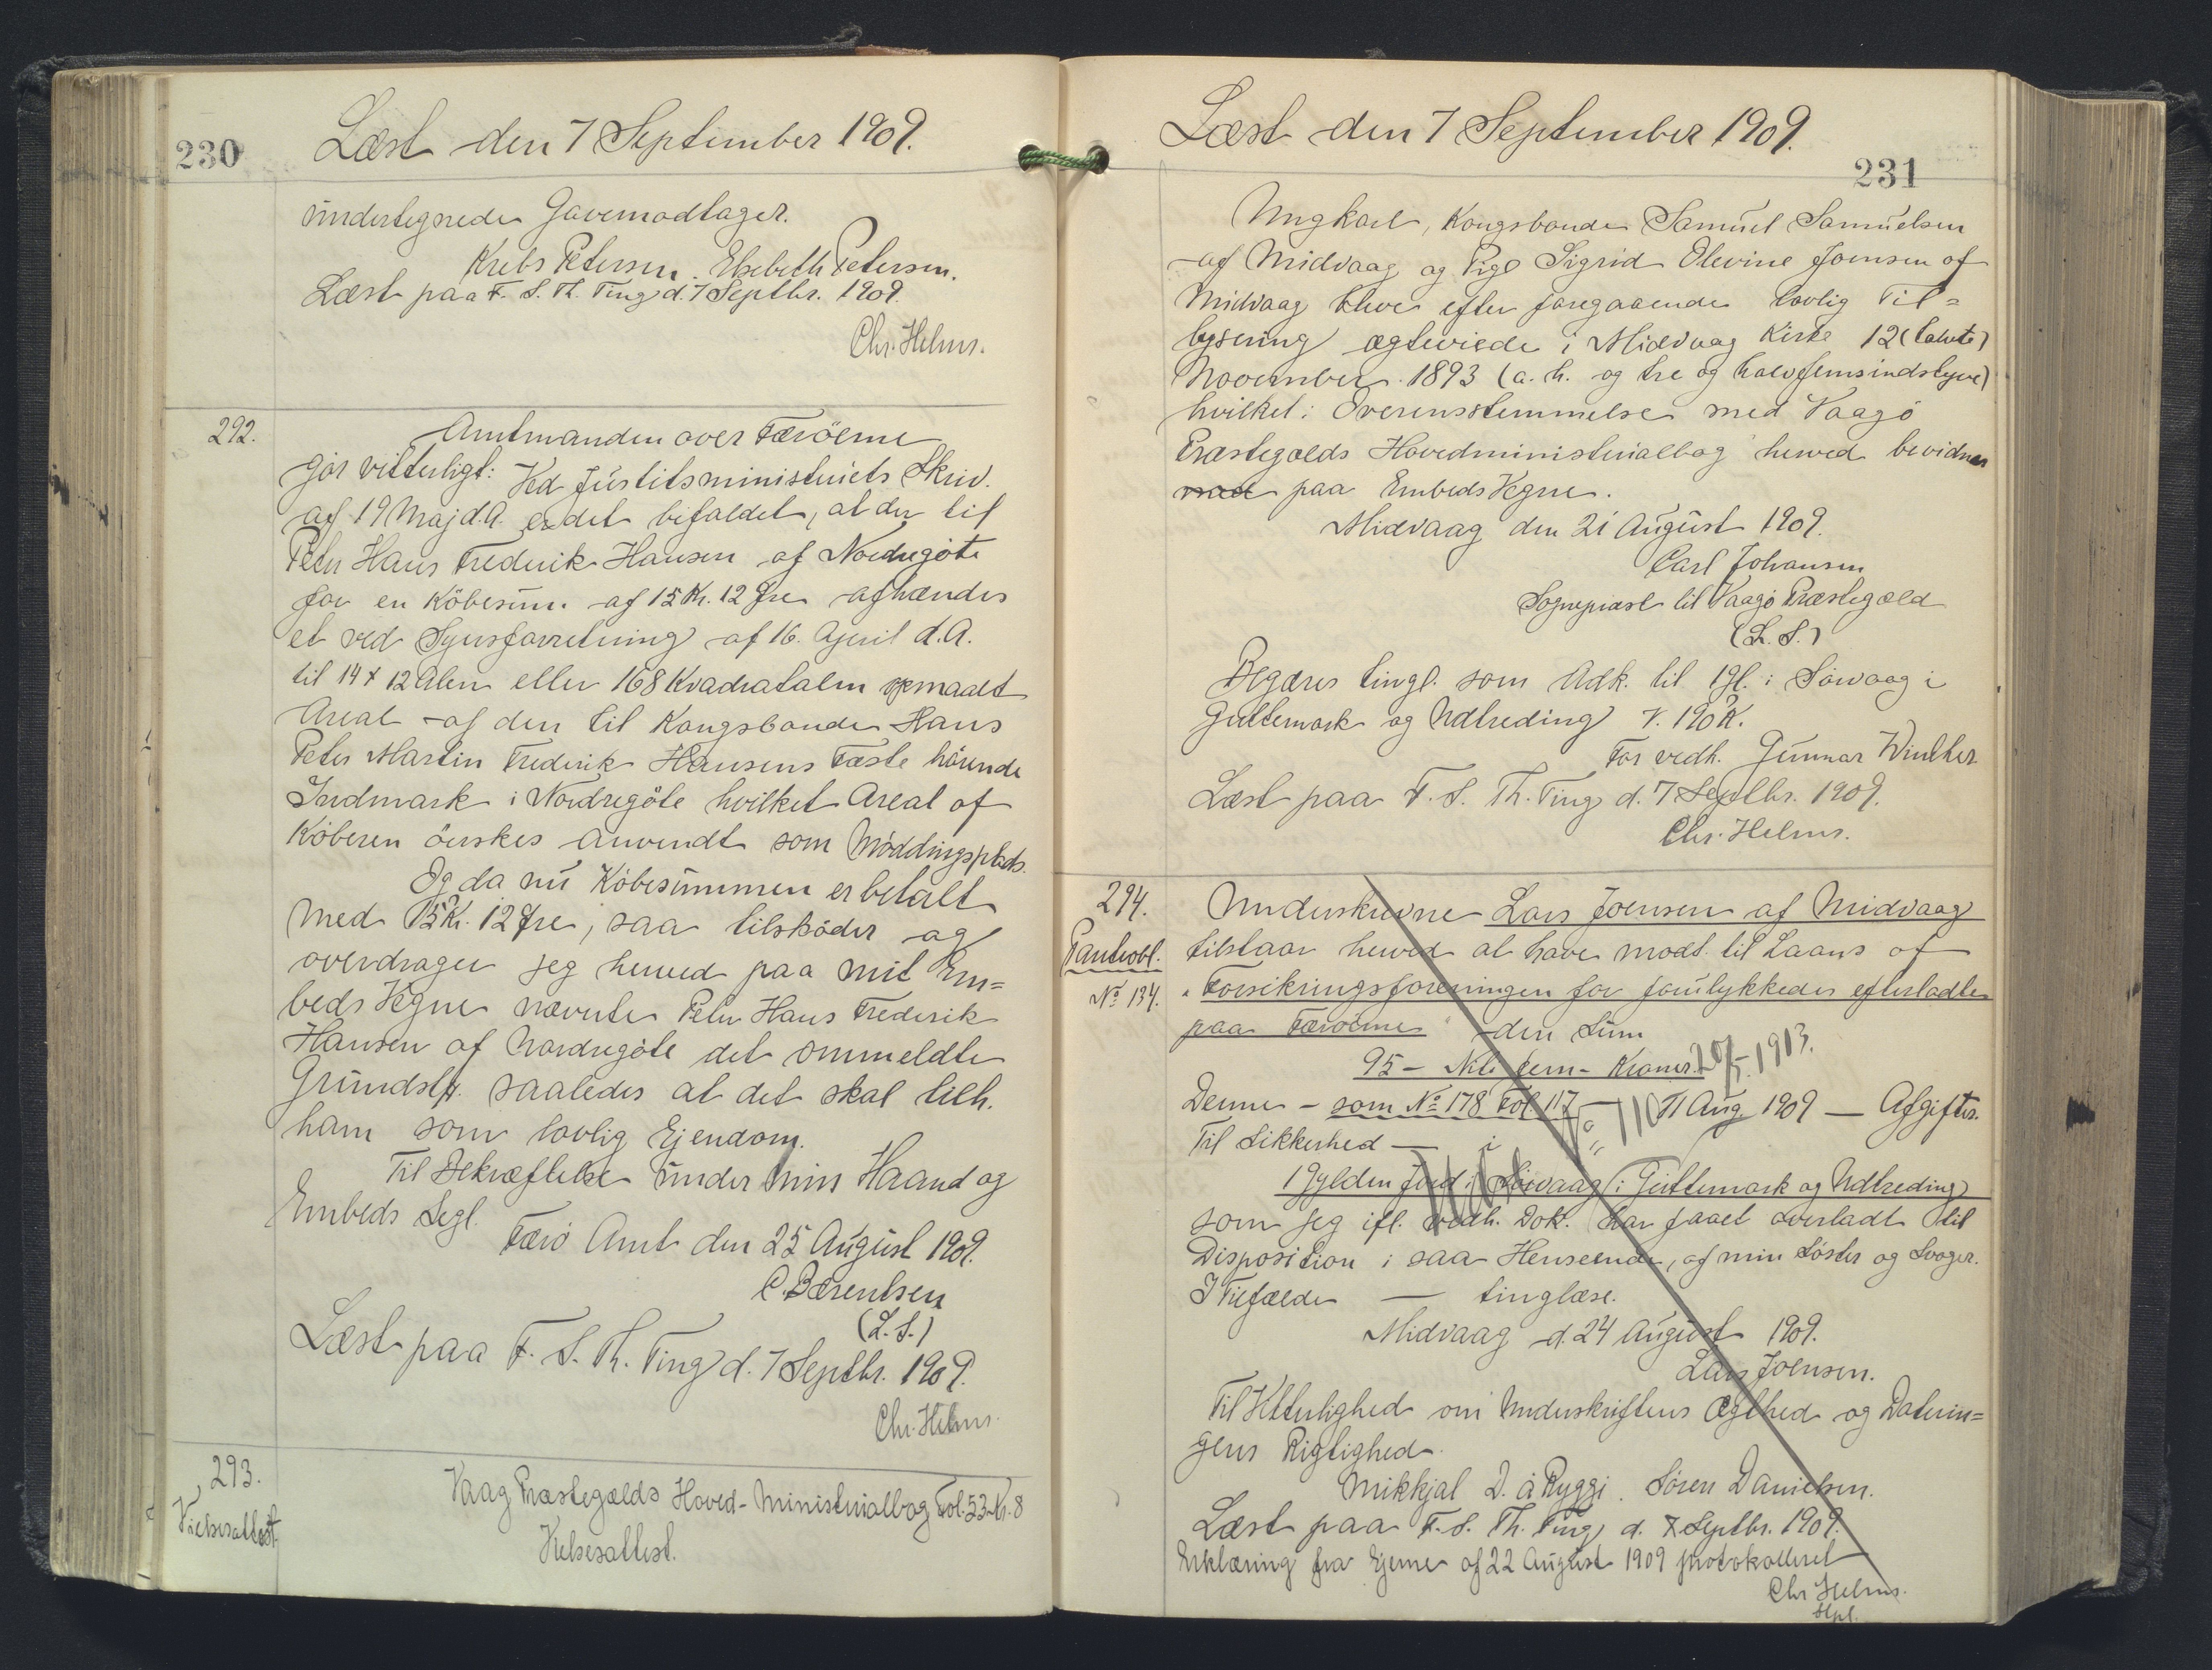 230
Læst den 7 September 1909.
undertegnede Gavemodtager.
Krebs Petersen. Elsebeth Petersen.
Læst paa F. S. Th. Ting d. 7 Septbr. 1909.
Chr. Helms.
292.
Amtmanden over Færöerne
gör vitterligt: Ved Justitsministeriets Skriv.
af 19 Maj d.A. er det bifaldet, at der til
Peter Hans Frederik Hansen af Nordregöte
for en Köbesum. af 15 Kr. 12 Øre afhændes
et ved Synsforretning af 16. April d.A.
til 14 x 12 Alen eller 168 Kvadratalen opmaalt
Areal af den til Kongsbonde Hans
Peter Martin Frederik Hansens Fæste hörende
Indmark i Nordregöte hvilket Areal af
Köberen önskes anvendt som Möddingsplads.
Og da nu Köbesummen er betalt
med 15 Kr. 12 Øre, saa tilsköder og
overdrager jeg herved paa mit Em=
beds Vegne nævnte Peter Hans Frederik
Hansen af Nordregöte det ommeldte
Grundst. saaledes at det skal tilh.
ham som lovlig Ejendom.
Til Bekræftelse under min Haand og
Embeds Segl.
Færö Amt den 25 August 1909.
C. Bærentsen
(L. S.)
Læst paa F. S. Th. Ting d. 7 Septbr. 1909.
Chr. Helms.
293.
Vielsesattest
Vaag Præstegælds Hoved-Ministerialbog Fol. 53 Nr. 8
Vielsesattest.
Læst den 7 September 1909.
231
Ungkarl, Kongsbonde Samuel Samuelsen
af Midvaag og Pige Sigrid Olevine Joensen af
Midvaag bleve efter foregaaende lovlig Til=
lysning ægteviede i Midvaag Kirke 12 (tolvte)
November 1893 (a. h. og tre og halvfemsindstyve)
hvilket i Overensstemmelse med Vaagö
Præstegælds Hovedministerialbog herved bevidnes
paa Embeds Vegne.
Midvaag den 21 August 1909.
Carl Johansen
Sognepræst til Vaagö Præstegæld
(L. S.)
Begæres tingl. som Adk. til 1 Gl. i Sörvaag i
Guttemark og Udtreding V. 190 K.
For vedk. Gunnar Winther
Læst paa F. S. Th. Ting d. 7 Septbr. 1909.
Chr. Helms.
294.
Panteobl.
No. 134.
Underskrevne Lars Joensen af Midvaag
tilstaar herved at have modt. til Laans af
"Forsikringsforeningen for forulykkedes efterladte
paa Færöerne" den Sum
95 - Niti fem - Kroner. 20/5. 1913.
Denne - som No. 178 Fol. 117 - 11 Aug. 1909 - Afgifter.
Til Sikkerhed - i
1 Gylden Jord i Sörvaag i Guttemark og Udtreding
som jeg ifl. vedh. Dok. har faaet overladt til
Disposition i saa Henseende, af min Söster og Svoger.
I Tilfælde - tinglæse.
Midvaag d. 24 August 1909.
Lars Joensen.
Til Vitterlighed om Underskriftens Ægthed og Daterin=
gens Rigtighed.
Mikkjal D. á Ryggi. Sören Danielsen.
Læst paa F. S. Th. Ting d. 7 Septbr. 1909.
Erklæring fra Ejerne af 22 August 1909 protokolleret
Chr Helms.